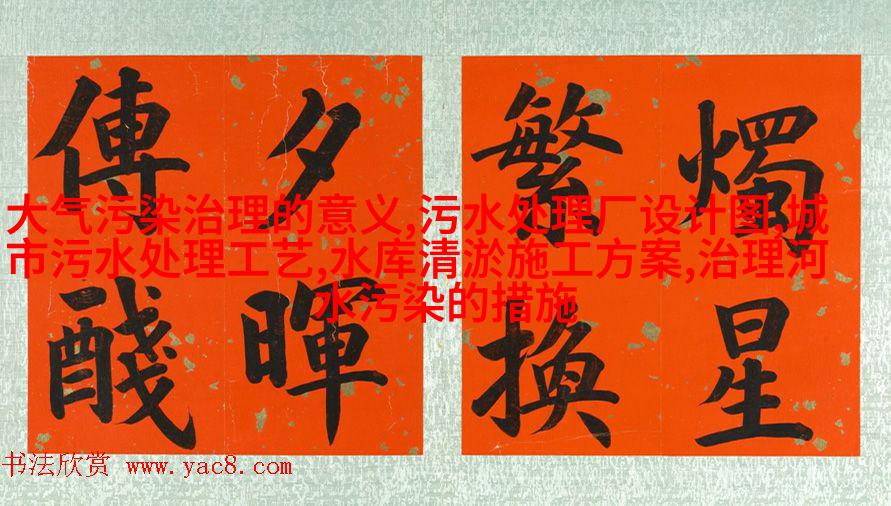 燭星
繁換
夕暉
傳醆
大气污染治理的意义,污水处理厂设计图,城
市污水处理工艺,水库清淤施工方案,治理河
水污染的措施
书法欣赏 www.yac8.com